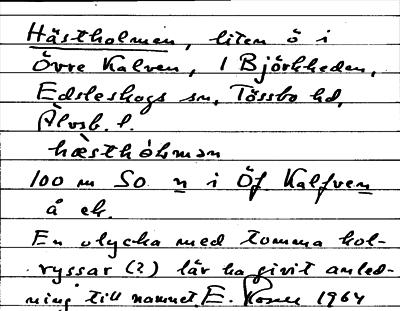 Hästholmen, liten ö i
Övre Kalven, 1 Björkheden,
Edsleskogs sn, Tössbo hd,
Älvsb. l.
hæ̀sthòlmən
100 m SO n i Öf. Kalfven
å ek.
En olycka med tomma kol-
ryssar (?) lär ha givit anled-
ning till namnet. E. 1964